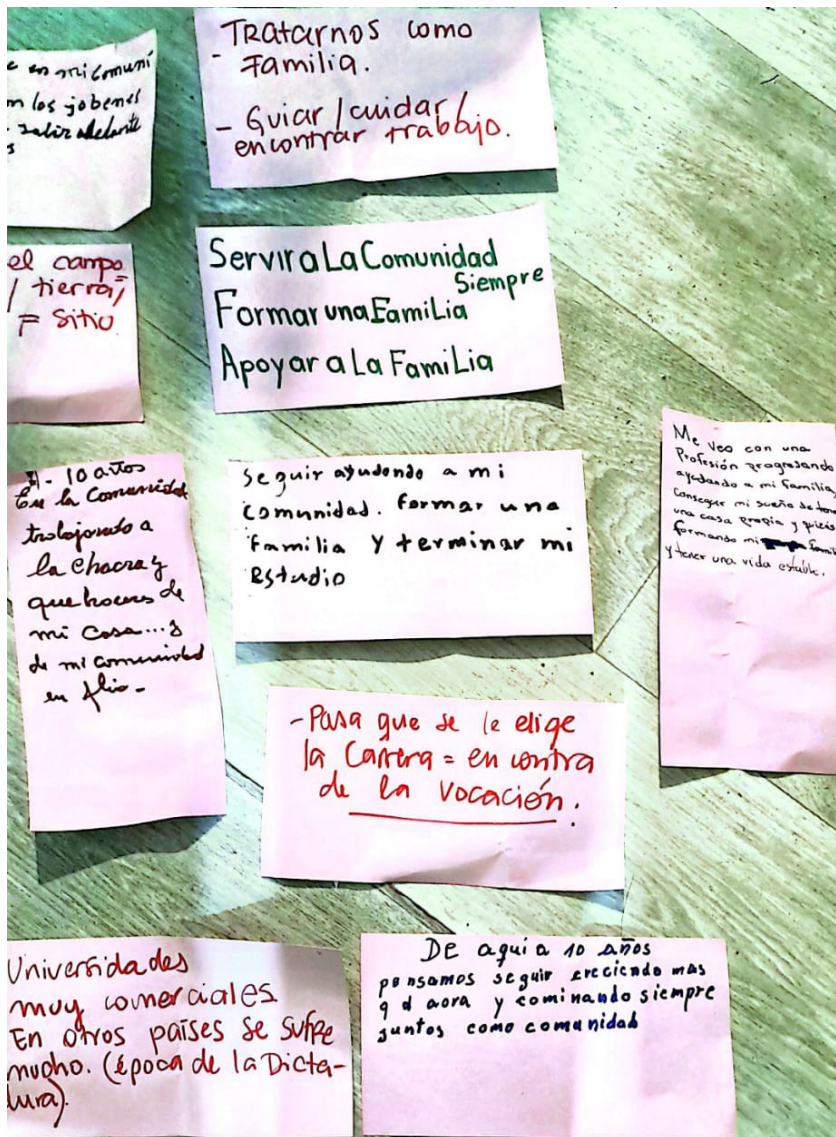 e en mi comuni
n los jobenes
salir adelante
s
TRatarnos como
- Familia.
- Guiar / cuidar /
encontrar trabajo.
el campo
/ tierra/
= Sitio
Servir a La Comunidad
Siempre
Formar una FamiLia
Apoyar a La FamiLia
- 10 años
En la Comunidad
trabajando a
la chacra y
que haceres de
mi casa... y
de mi comunidad
en
Seguir ayudondo a mi
comunidad. formar una
familia y terminar mi
Estudio
Me veo con una
Profesión progresando
ayudando a mi familia,
conseguir mi sueño de ten
una casa propia y quizás
formando mi famil
y tener una vida estable.
- Pasa que se le elige
la Carrera = en contra
de la vocación.
Universidades
muy comerciales
En otros países se sufre
mucho. (época de la Dicta-
dura).
DE aqui a 10 años
pensamos seguir creciendo mas
q d aora y cominando siempre
juntos como comunidad